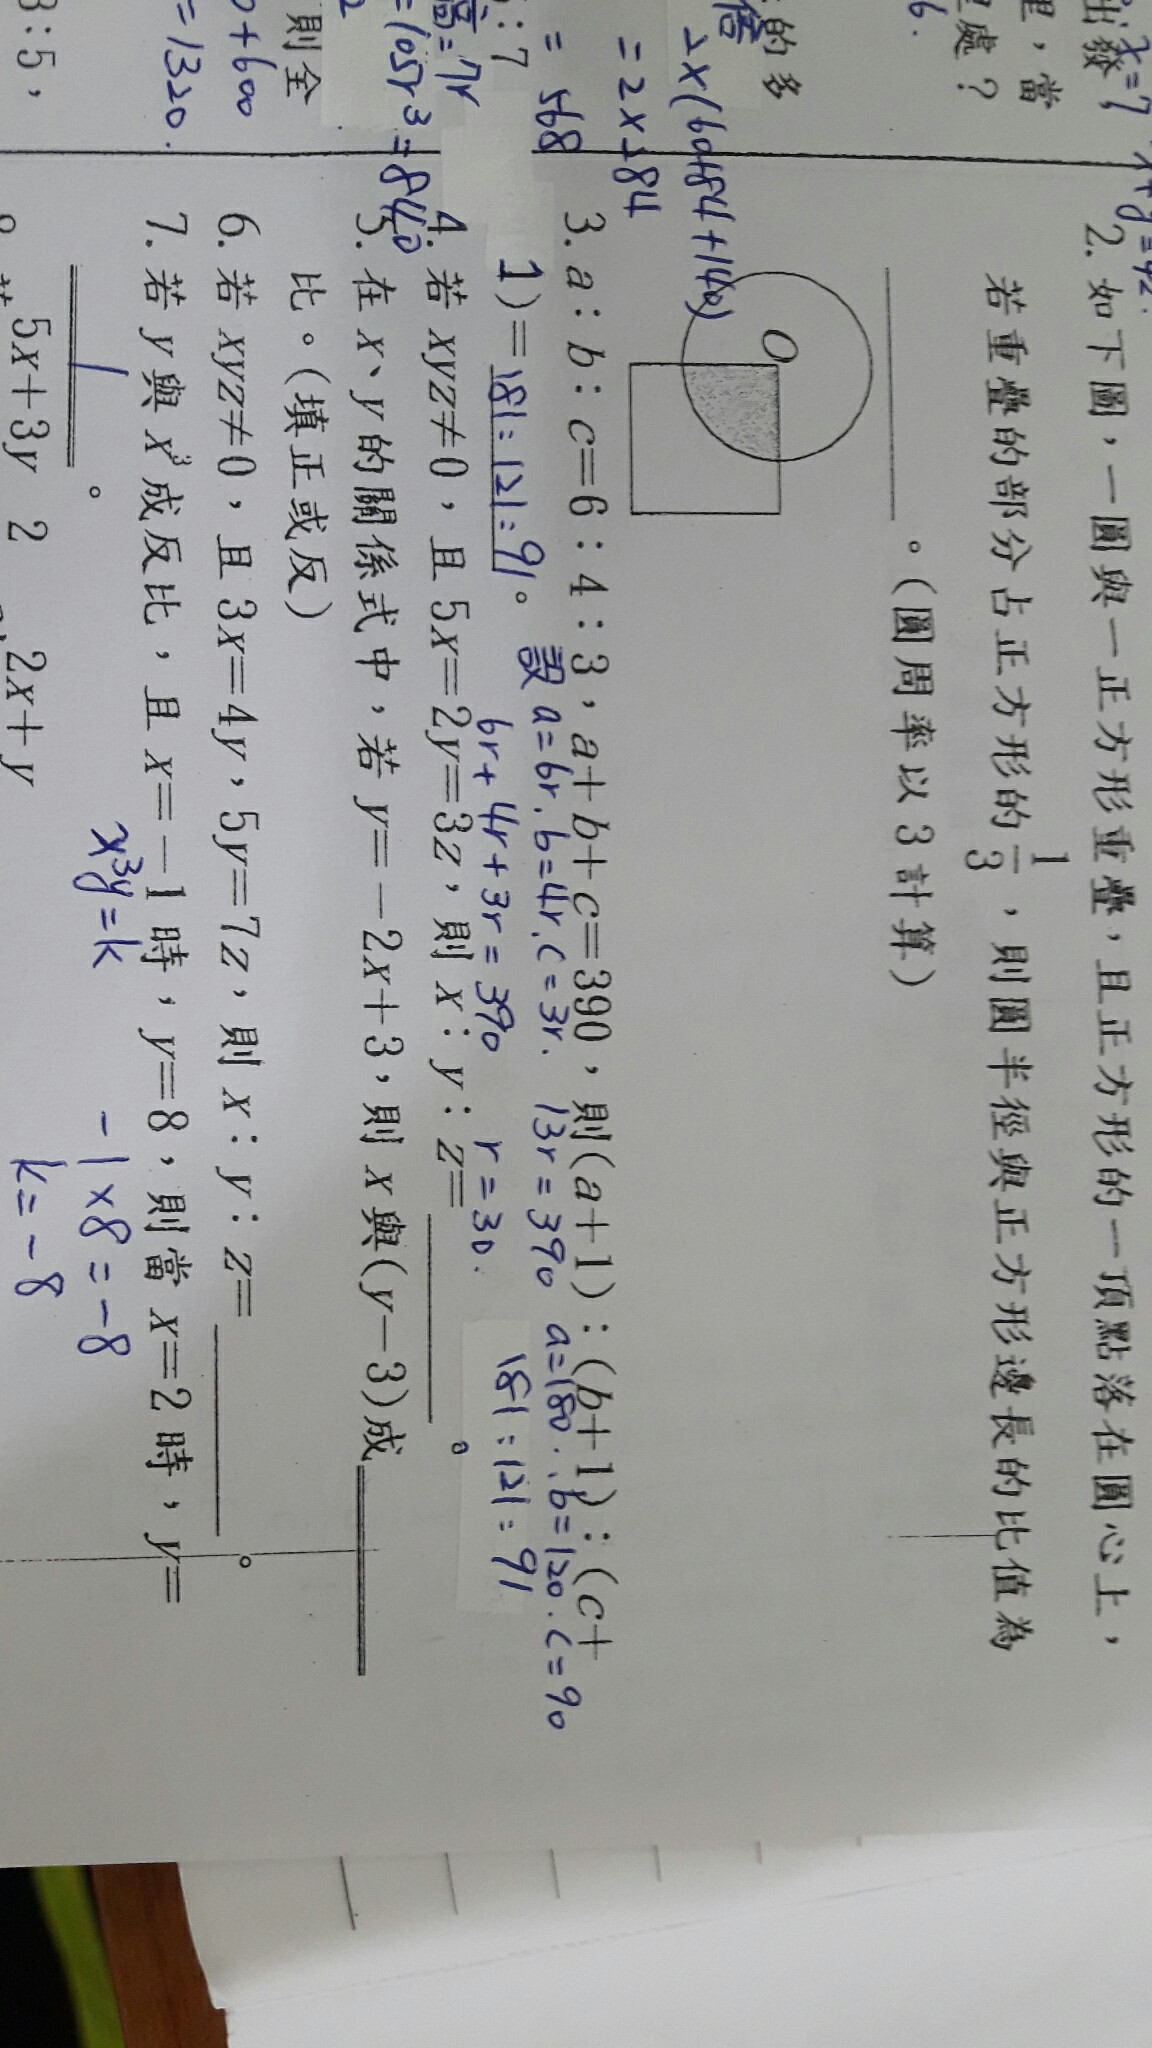 2. 如下圖，一圓與一正方形重疊，且正方形的一頂點落在圓心上，
若重疊的部分占正方形的1/3，則圓半徑與正方形邊長的比值為
。（圓周率以3計算）
O
3. a：b：c=6：4：3，a+b+c=390，則(a+1)：(b+1)：(c+
設 a=6r. b=4r. c=3r. 13r=390 a=180. b=120. c=90
1)=181:121:91。
6r+4r+3r=390 r=30. 181:121:91
4. 若 xyz≠0，且 5x=2y=3z，則 x：y：z= 。
5. 在 x、y 的關係式中，若 y=−2x+3，則 x 與(y−3)成
比。（填正或反）
6. 若 xyz≠0，且 3x=4y，5y=7z，則 x：y：z= 。
7. 若 y 與 x³ 成反比，且 x=−1 時，y=8，則當 x=2 時，y=
x³y=k −1×8=−8
k=−8
。
5x+3y 2 2x+y
出發 x=7
里，當
處？
6.
的多
倍
2×(60+84+140)
=2×284
=568
：7
=7r
=105r³=840
則全
+600
=1320.
3：5，